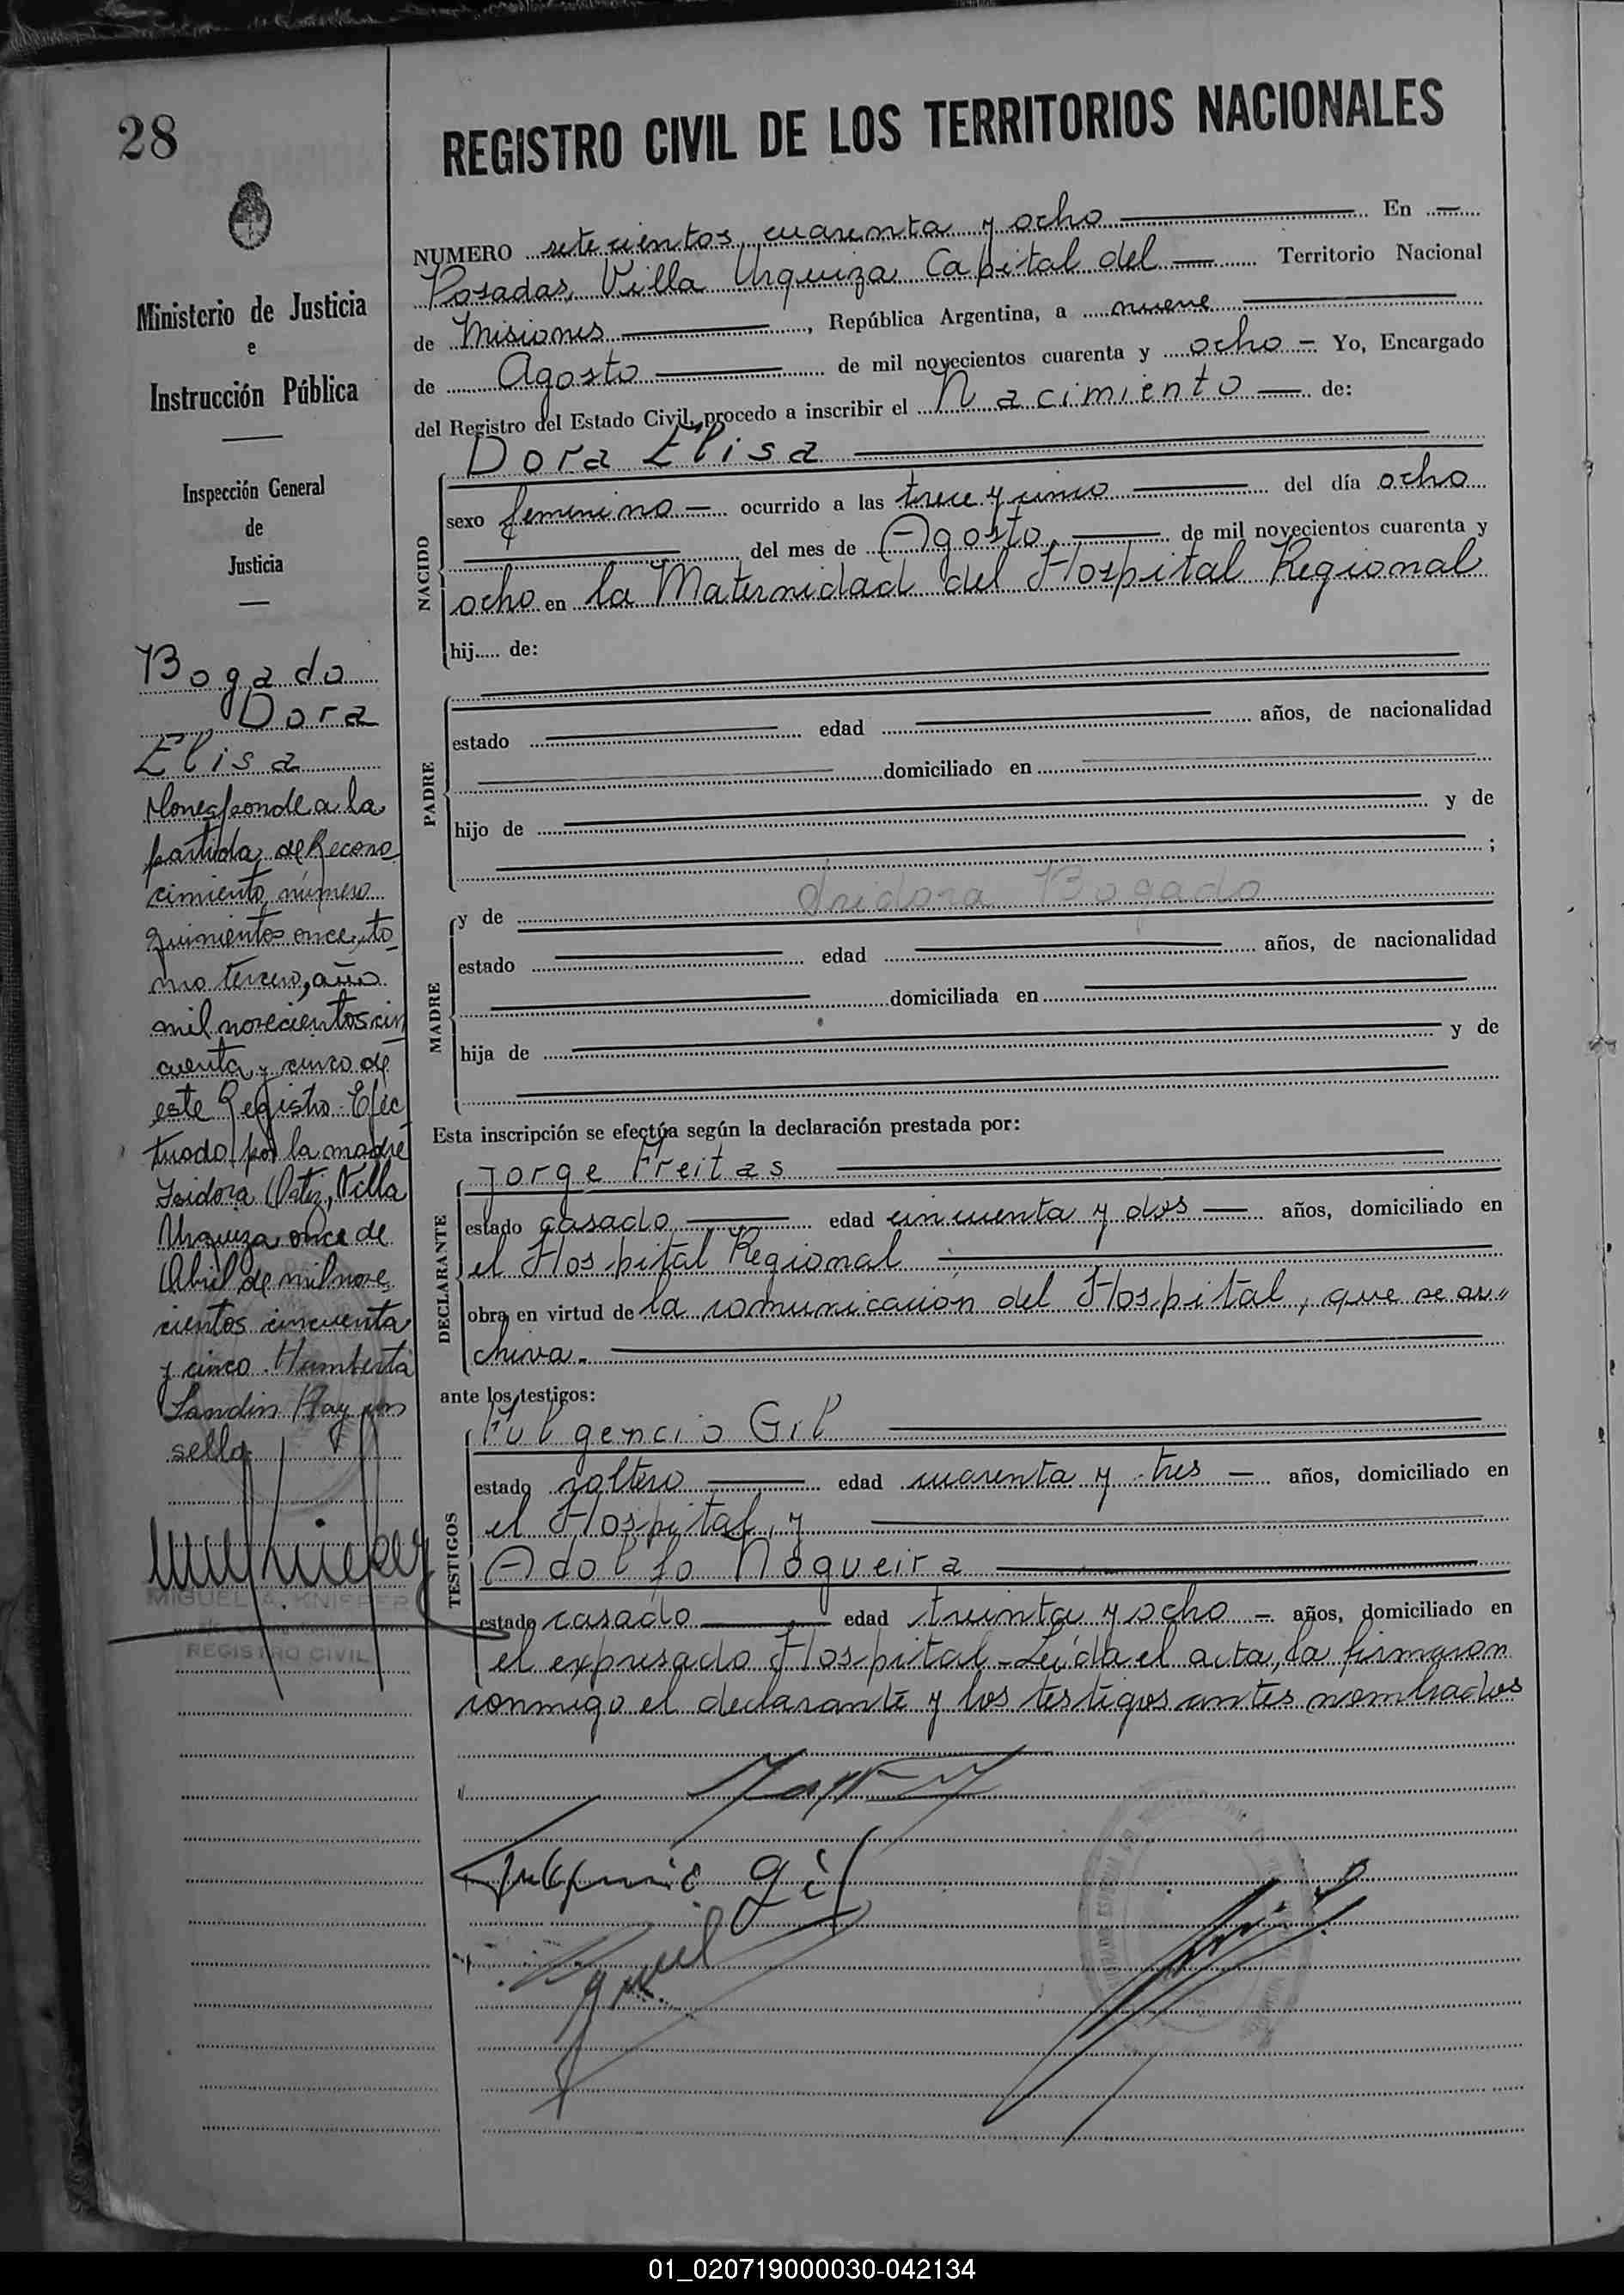 28
REGISTRO CIVIL DE LOS TERRITORIOS NACIONALES
Ministerio de Justicia
e
Instrucción Pública
Inspección General
de
Justicia
Bogado
Dora
Elisa
Corresponde a la
partida de Recono
cimiento número
quinientos once, to
mo tercero, año
mil novecientos cin
cuenta y cinco de
este Registro. Efec
tuado por la madre
Isidora Ortiz, Villa
Urquiza once de
Abril de mil nove
cientos cincuenta
y cinco. Humberto
Landin Hay un
sello
MIGUEL A. KNIEPER
REGISTRO CIVIL
NUMERO setecientos cuarenta y ocho En
Posadas, Villa Urquiza Capital del Territorio Nacional
de Misiones, República Argentina, a nueve
de Agosto de mil novecientos cuarenta y ocho - Yo, Encargado
del Registro del Estado Civil, procedo a inscribir el Nacimiento de:
Dora Elisa
NACIDO
sexo femenino ocurrido a las trece y cinco del día ocho
del mes de Agosto de mil novecientos cuarenta y
ocho en la Maternidad del Hospital Regional
hij..... de:
PADRE
estado edad años, de nacionalidad
domiciliado en
hijo de y de
;
MADRE
y de Isidora Bogado
estado edad años, de nacionalidad
domiciliada en
hija de y de
Esta inscripción se efectúa según la declaración prestada por:
DECLARANTE
Jorge Freitas
estado casado edad cincuenta y dos años, domiciliado en
el Hospital Regional
obra en virtud de la comunicación del Hospital, que se ar"
chiva.
ante los testigos:
TESTIGOS
Fulgencio Gil
estado soltero edad cuarenta y tres años, domiciliado en
el Hospital, y
Adolfo Nogueira
estado casado edad treinta y ocho años, domiciliado en
el expresado Hospital - Leída el acta, la firmaron
conmigo el declarante y los testigos antes nombrados
Fulgencio Gil
01_020719000030-042134